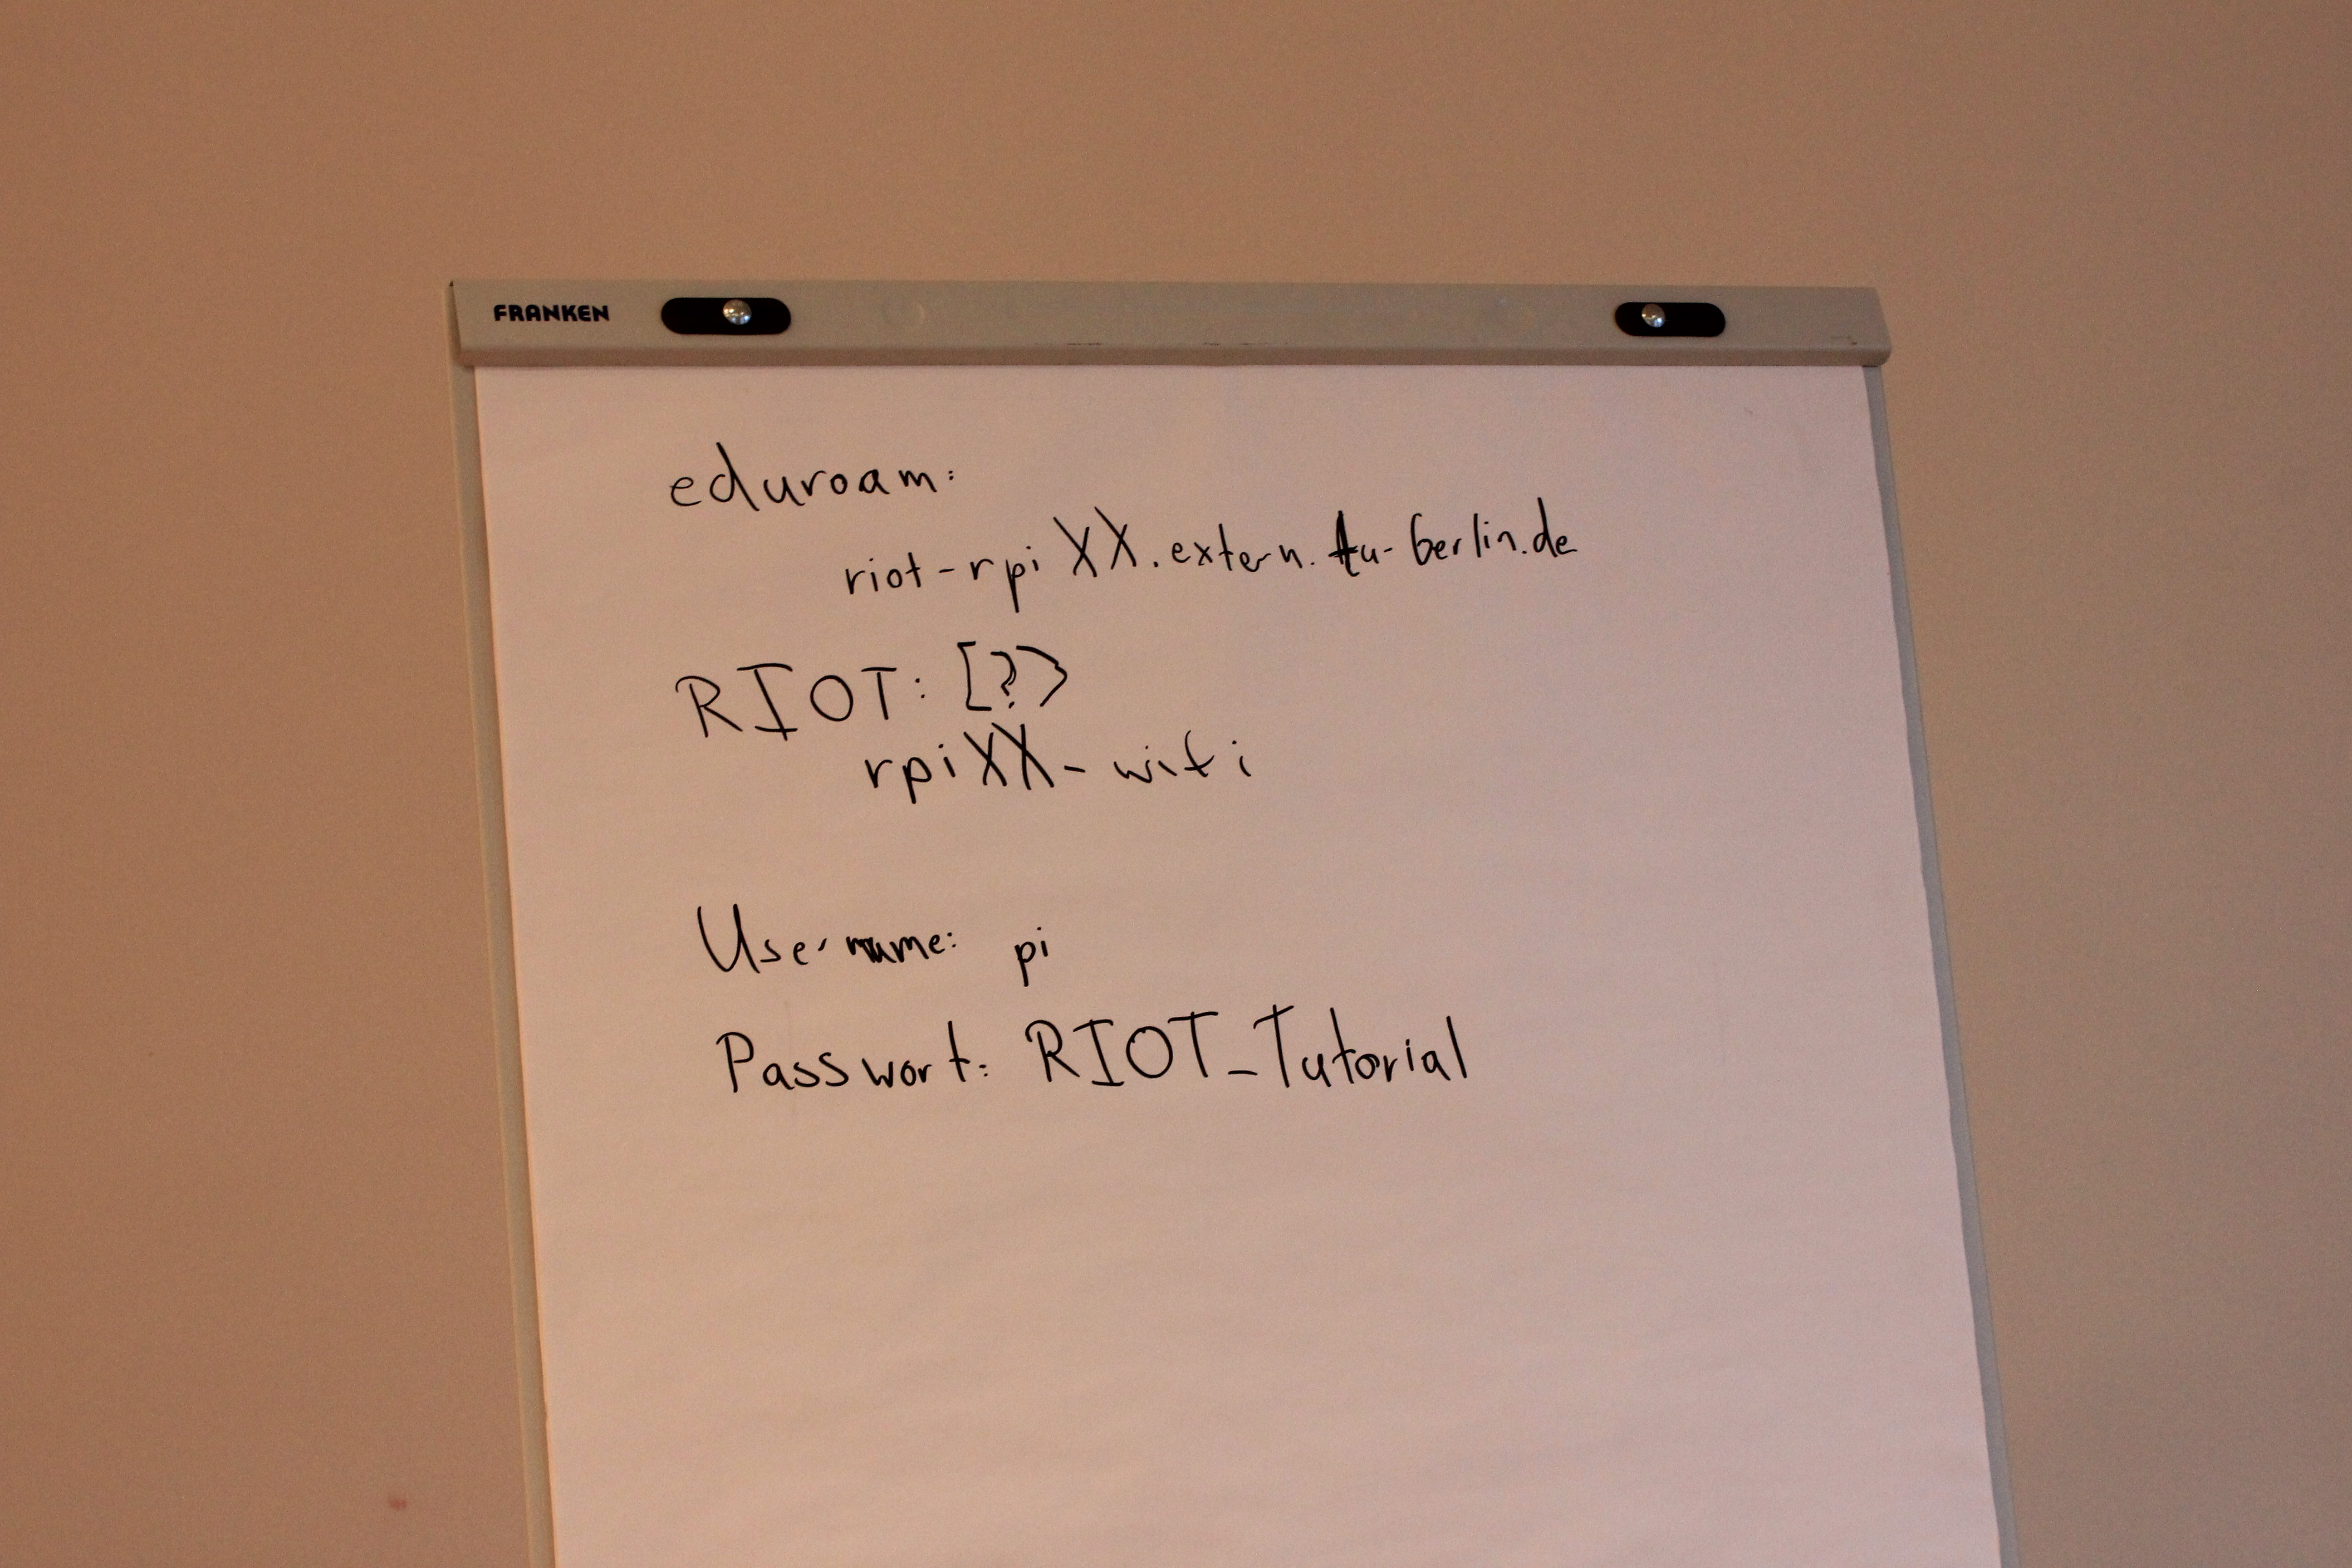 FRANKEN
eduroam:
riot-rpiXX.extern.tu-berlin.de
RIOT: [?]
rpiXX-wifi
Username: pi
Passwort: RIOT_Tutorial